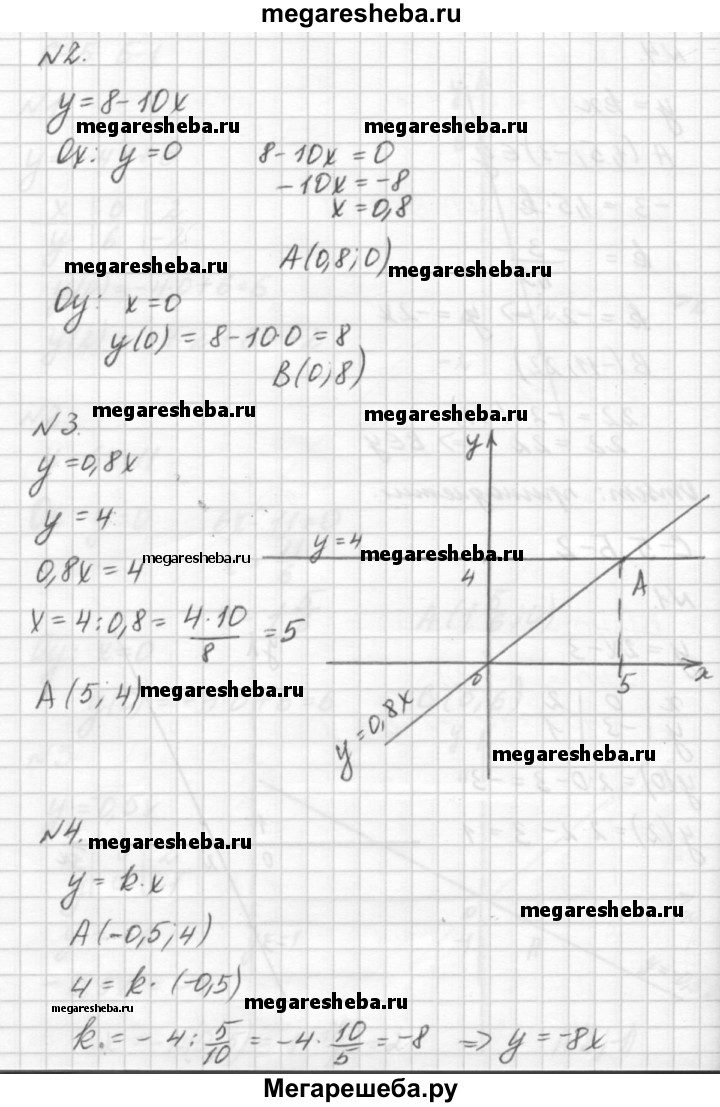 megaresheba.ru
N2.
y = 8 - 10x
megaresheba.ru megaresheba.ru
Ox: y = 0 8 - 10x = 0
-10x = -8
x = 0,8
A(0,8; 0)
megaresheba.ru megaresheba.ru
Oy: x = 0
y(0) = 8 - 10·0 = 8
B(0; 8)
megaresheba.ru megaresheba.ru
N3.
y = 0,8x
y = 4
0,8x = 4
megaresheba.ru
x = 4 : 0,8 = 4·10/8 = 5
A(5; 4)
megaresheba.ru
y
y = 4
megaresheba.ru
4
A
0
5
x
y = 0,8x
megaresheba.ru
N4.
megaresheba.ru
y = k·x
megaresheba.ru
A(-0,5; 4)
4 = k·(-0,5)
megaresheba.ru megaresheba.ru
k = -4 : 5/10 = -4 · 10/5 = -8 => y = -8x
Мегарешеба.ру